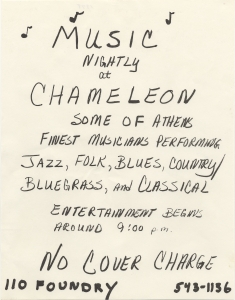 MUSIC
NIGHTLY
at
CHAMELEON
SOME OF ATHENS
FINEST MUSICIANS PERFORMING
JAZZ, FOLK, BLUES, COUNTRY/
BLUEGRASS, and CLASSICAL
ENTERTAINMENT BEGINS
AROUND 9:00 p.m.
NO COVER CHARGE
110 FOUNDRY 543-1136